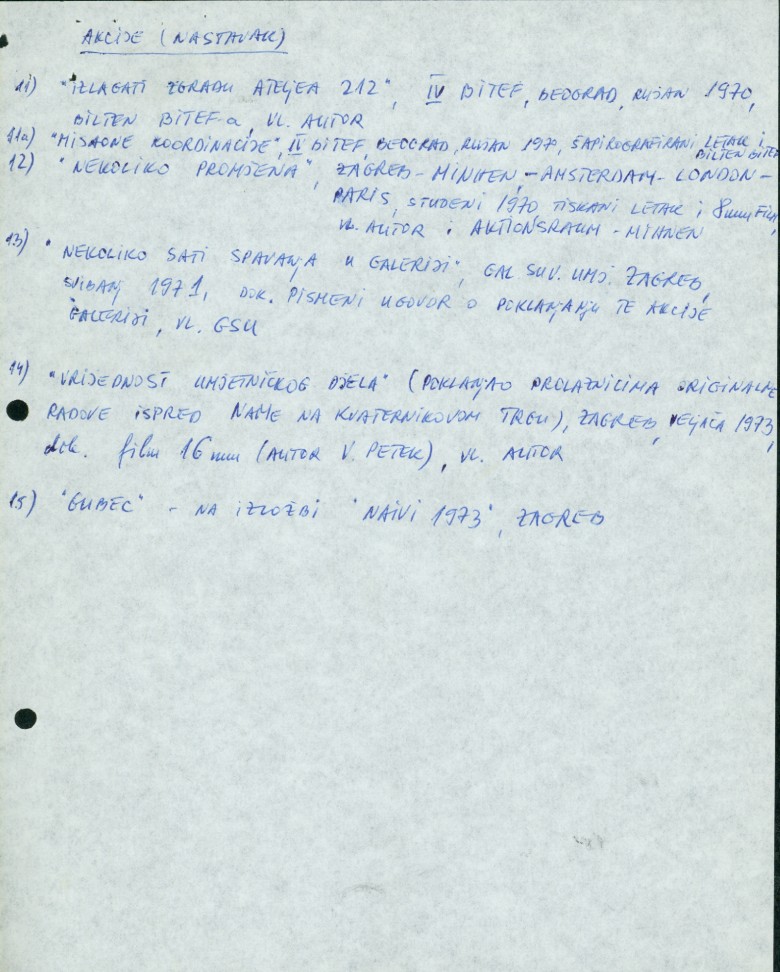 AKCIJE (NASTAVAK)
11) "IZLAGATI ZGRADU ATELJEA 212", IV BITEF, BEOGRAD, RUJAN 1970,
BILTEN BITEF-a, VL. AUTOR
11a) "MISAONE KOORDINACIJE", IV BITEF, BEOGRAD, RUJAN 1970, ŠAPIROGRAFIRANI LETAK i
BILTEN BITEF
12) "NEKOLIKO PROMJENA", ZAGREB-MINHEN-AMSTERDAM-LONDON-
PARIS, STUDENI 1970 TISKANI LETAK i 8mm FILM,
VL. AUTOR i AKTIONSRAUM - MINHEN
13) "NEKOLIKO SATI SPAVANJA U GALERIJI", GAL. SUV. UMJ. ZAGREB,
SVIBANJ 1971, DOK. PISMENI UGOVOR O POKLANJANJU TE AKCIJE
GALERIJI, VL. GSU
14) "VRIJEDNOST UMJETNIČKOG DJELA" (POKLANJAO PROLAZNICIMA ORIGINALNE
RADOVE ISPRED NAME NA KVATERNIKOVOM TRGU), ZAGREB, VELJAČA 1973,
dok. film 16 mm (AUTOR V. PETEK), VL. AUTOR
15) "GUBEC" - NA IZLOŽBI "NAIVI 1973", ZAGREB